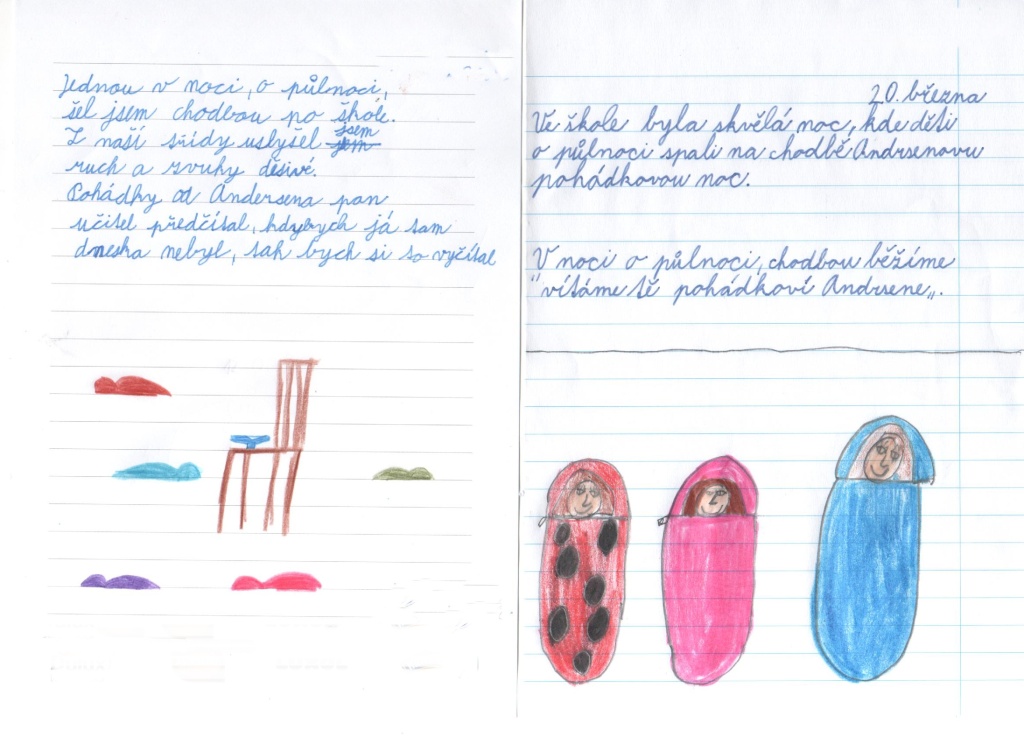 Jednou v noci, o půlnoci,
šel jsem chodbou po škole.
Z naší třídy uslyšel jsem
ruch a zvuky děsivé.
Pohádky od Andersena pan
učitel předčítal, kdybych já tam
dneska nebyl, tak bych si to vyčítal
20. března
Ve škole byla skvělá noc, kde děti
o půlnoci spali na chodbě Andrsenovu
pohádkovou noc.
V noci o půlnoci, chodbou běžíme
"vítáme tě pohádkoví Andrsene„.